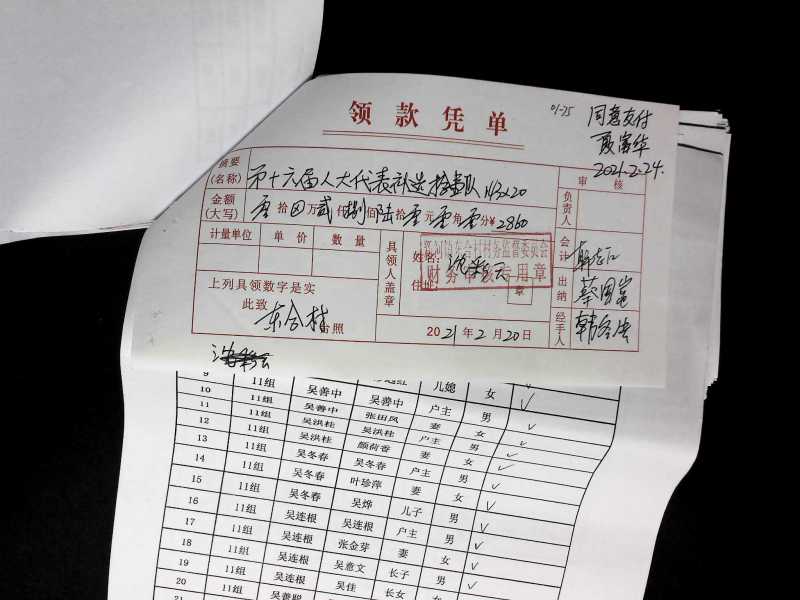 领款凭单
01-25
同意支付
2021.2.24.
摘要(名称) 第十六届人大代表 143×20
审核
金额(大写) 零拾 万贰仟捌佰陆拾零元零角零分 ¥2860
负责人
计量单位 单价 数量
具领人盖章
姓名:
住址:
村务监督委员会
财务审核专用章
章
会计
上列具领数字是实
出纳
此致
东合村 台照
2021年2月20日
经手人
9 儿媳 女
10 11组 吴善中 吴善中 户主 男 ✓
11 11组 吴善中 张田凤 妻 女 ✓
12 11组 吴洪桂 吴洪桂 户主 男 ✓
13 11组 吴洪桂 颜荷香 妻 女 ✓
14 11组 吴冬春 吴冬春 户主 男 ✓
15 11组 吴冬春 叶珍萍 妻 女 ✓
16 11组 吴冬春 吴烨 儿子 男 ✓
17 11组 吴连根 吴连根 户主 男 ✓
18 11组 吴连根 张金芽 妻 女 ✓
19 11组 吴连根 吴意文 长子 男 ✓
20 11组 吴连根 吴佳 长女 女 ✓
21